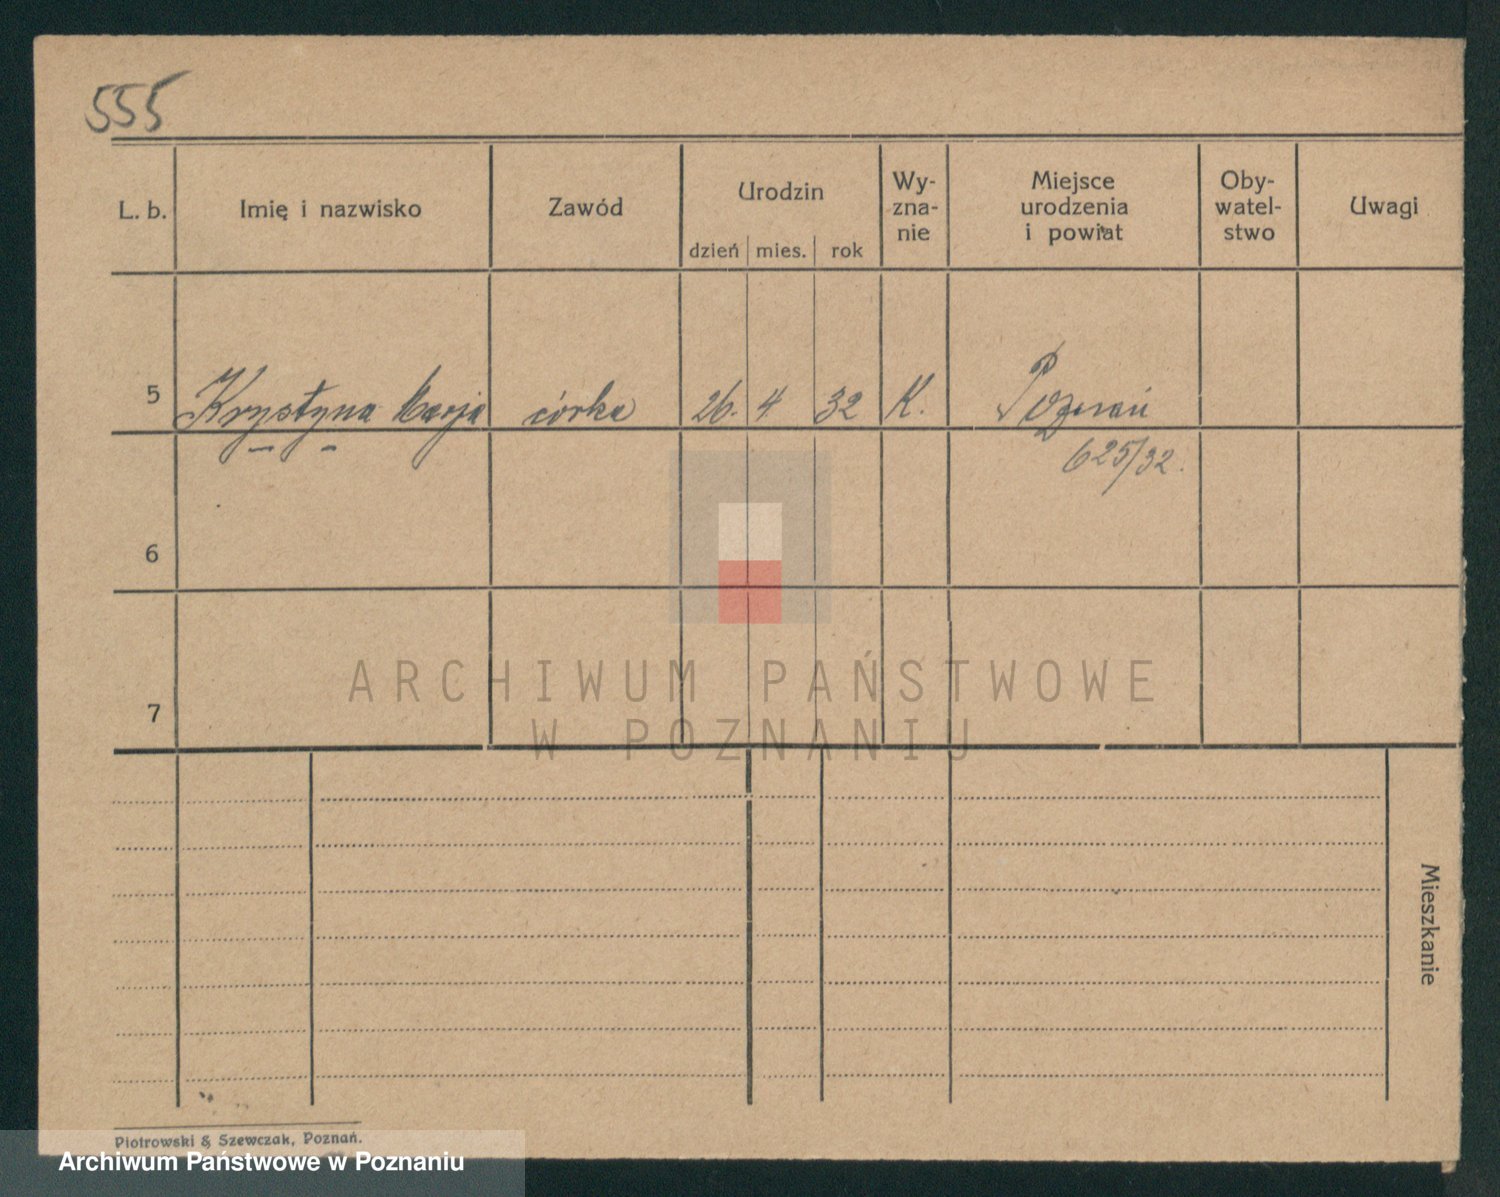 555
L. b.
Imię i nazwisko
Zawód
Urodzin
dzień mies. rok
Wy-
zna-
nie
Miejsce
urodzenia
i powiat
Oby-
watel-
stwo
Uwagi
5 Krystyna Marja córka 26. 4. 32 K. Poznań
625/32.
6
7
ARCHIWUM PAŃSTWOWE
W POZNANIU
Mieszkanie
Piotrowski & Szewczak, Poznań.
Archiwum Państwowe w Poznaniu